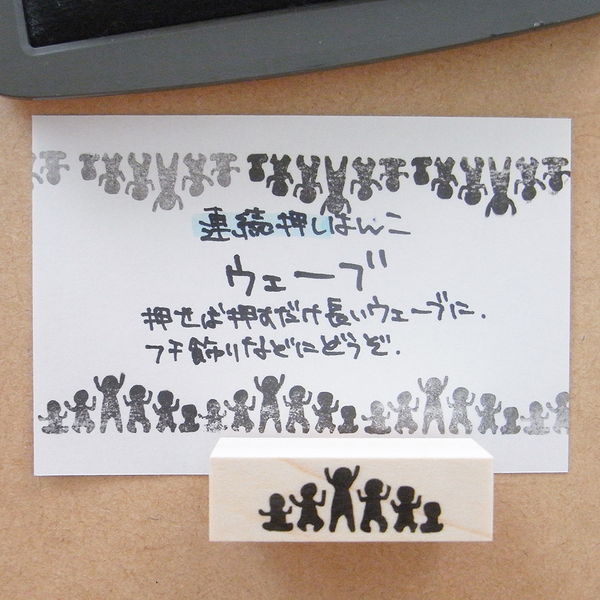 連続押しはんこ
ウェーブ
押せば押すだけ長いウェーブに.
フチ飾りなどにどうぞ.